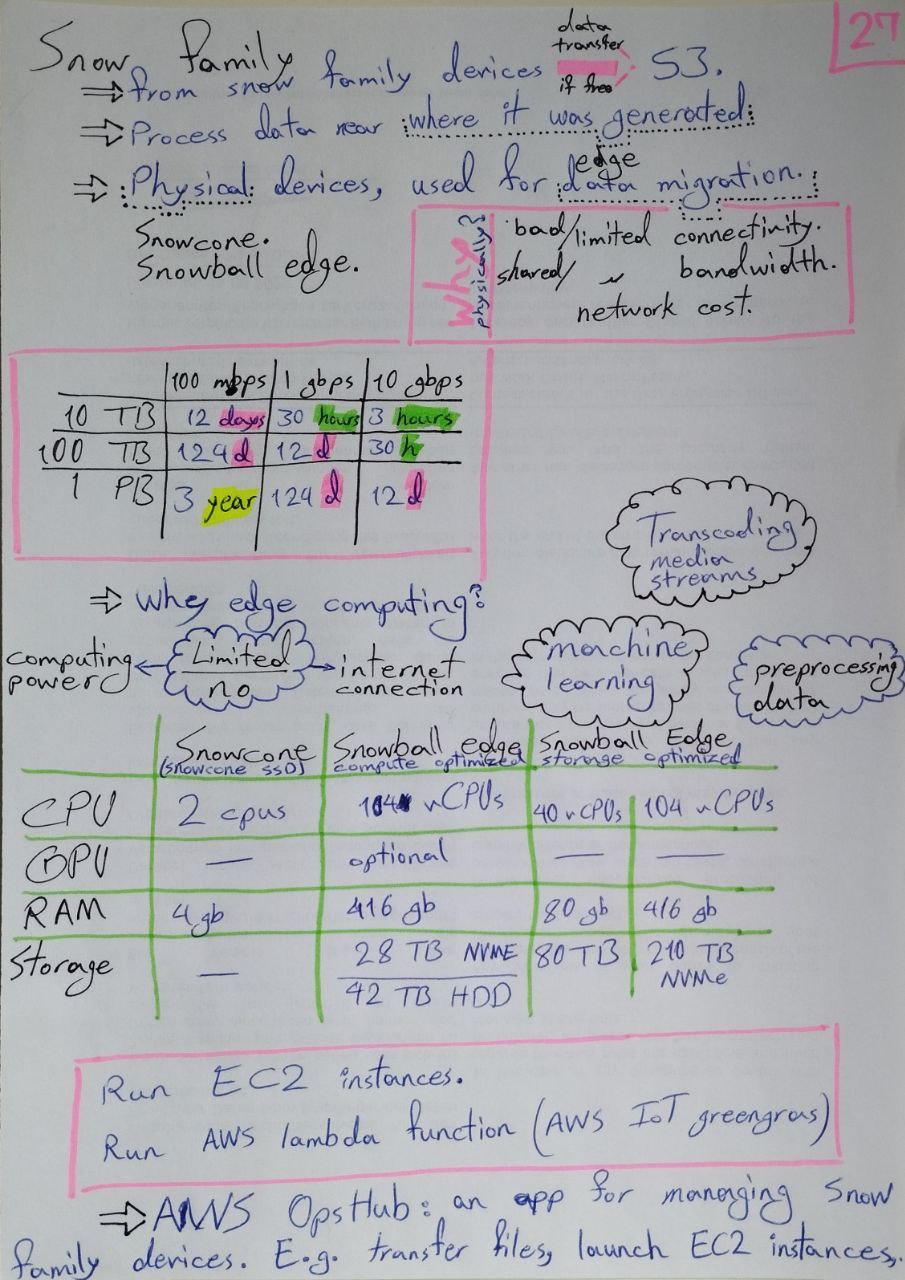 27
Snow family
data transfer
if free
⇒ from snow family devices S3.
⇒ Process data near where it was generated.
edge
⇒ Physical devices, used for data migration.
Snowcone.
Snowball edge.
Why physically?
bad/limited connectivity.
shared/ 〃 bandwidth.
network cost.
100 mbps 1 gbps 10 gbps
10 TB 12 days 30 hours 3 hours
100 TB 124 d 12 d 30 h
1 PB 3 year 124 d 12 d
Transcoding
media
streams
⇒ Why edge computing?
computing power ← Limited / no → internet connection
machine
learning
preprocessing
data
Snowcone Snowball edge Snowball Edge
(snowcone SSD) compute optimized storage optimized
CPU 2 cpus 104 vCPUs 40 vCPUs 104 vCPUs
GPU — optional — —
RAM 4 gb 416 gb 80 gb 416 gb
Storage — 28 TB NVME 80 TB 210 TB NVMe
42 TB HDD
Run EC2 instances.
Run AWS lambda function (AWS IoT greengras)
⇒ AWS OpsHub: an app for managing Snow
family devices. E.g. transfer files, launch EC2 instances,.